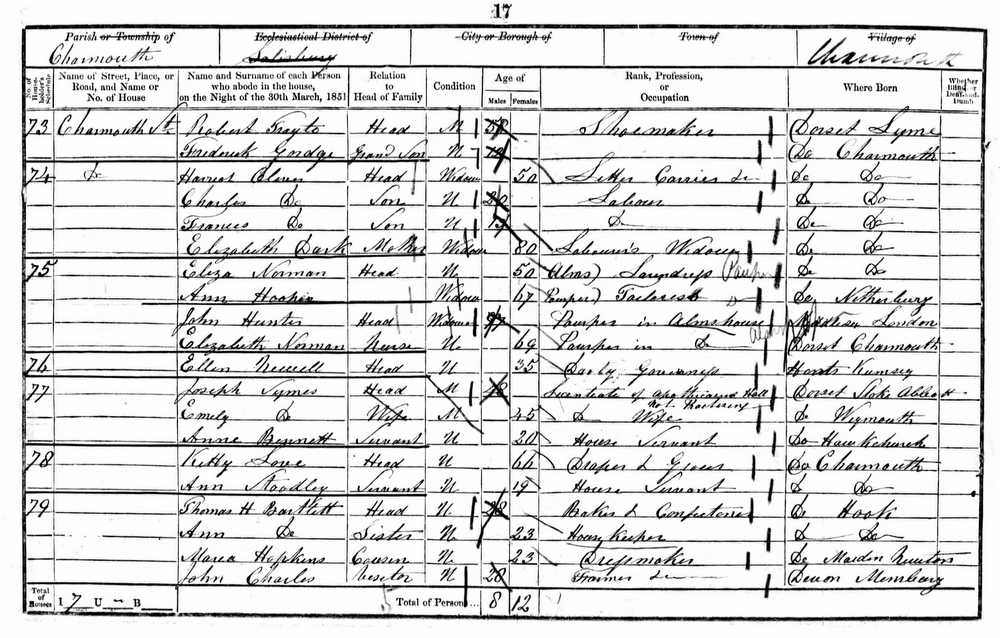 17
Parish or Township of Ecclesiastical District of City or Borough of Town of Village of
Charmouth Salisbury Charmouth
No. of Householder's Schedule Name of Street, Place, or Road, and Name or No. of House Name and Surname of each Person who abode in the house, on the Night of the 30th March, 1851 Relation to Head of Family Condition Age of Males Females Rank, Profession, or Occupation Where Born Whether Blind, or Deaf-and-Dumb
73 Charmouth St Robert Head M 58 Shoemaker Dorset Lyme
Frederick Grand Son U 12 Do Charmouth
74 Do Harriet Head Widow 50 Letter Carrier Do Do
Charles Do Son U 20 Labour Do Do
Frances Do Son U Do Do Do
Elizabeth Dark Mother Widow 80 Labourers Widow Do Do
75 Eliza Norman Head U 50 (Alms) Laundress Pauper Do Do
Ann Hooper Widow 67 (Pauper) Tailoress Do Do Netherbury
John Hunter Head Widower Pauper in Almshouse Middlesex London
Elizabeth Norman Nurse U 69 Pauper in Do Dorset Charmouth
76 Ellen Newell Head U 35 Daily Governess Hants Rumsey
77 Joseph Symes Head M 48 Licentiate of Apothecaries Hall Not Practising Dorset Stoke Abbott
Emely Do Wife M 45 Do Wife Do Weymouth
Anne Bennett Servant U 20 House Servant Do Hawkchurch
78 Kitty Love Head U 66 Draper & Grocer Do Charmouth
Ann Stoodley Servant U 19 House Servant Do Do
79 Thomas H Bartlett Head U 28 Baker & Confectioner Do Hook
Ann Do Sister U 23 House Keeper Do Do
Maria Hopkins Cousin U 23 Dressmaker Do Maiden Newton
John Charles Visitor U 28 Farmer Devon Membury
Total of Houses 17 U — B — Total of Persons ... 8 12